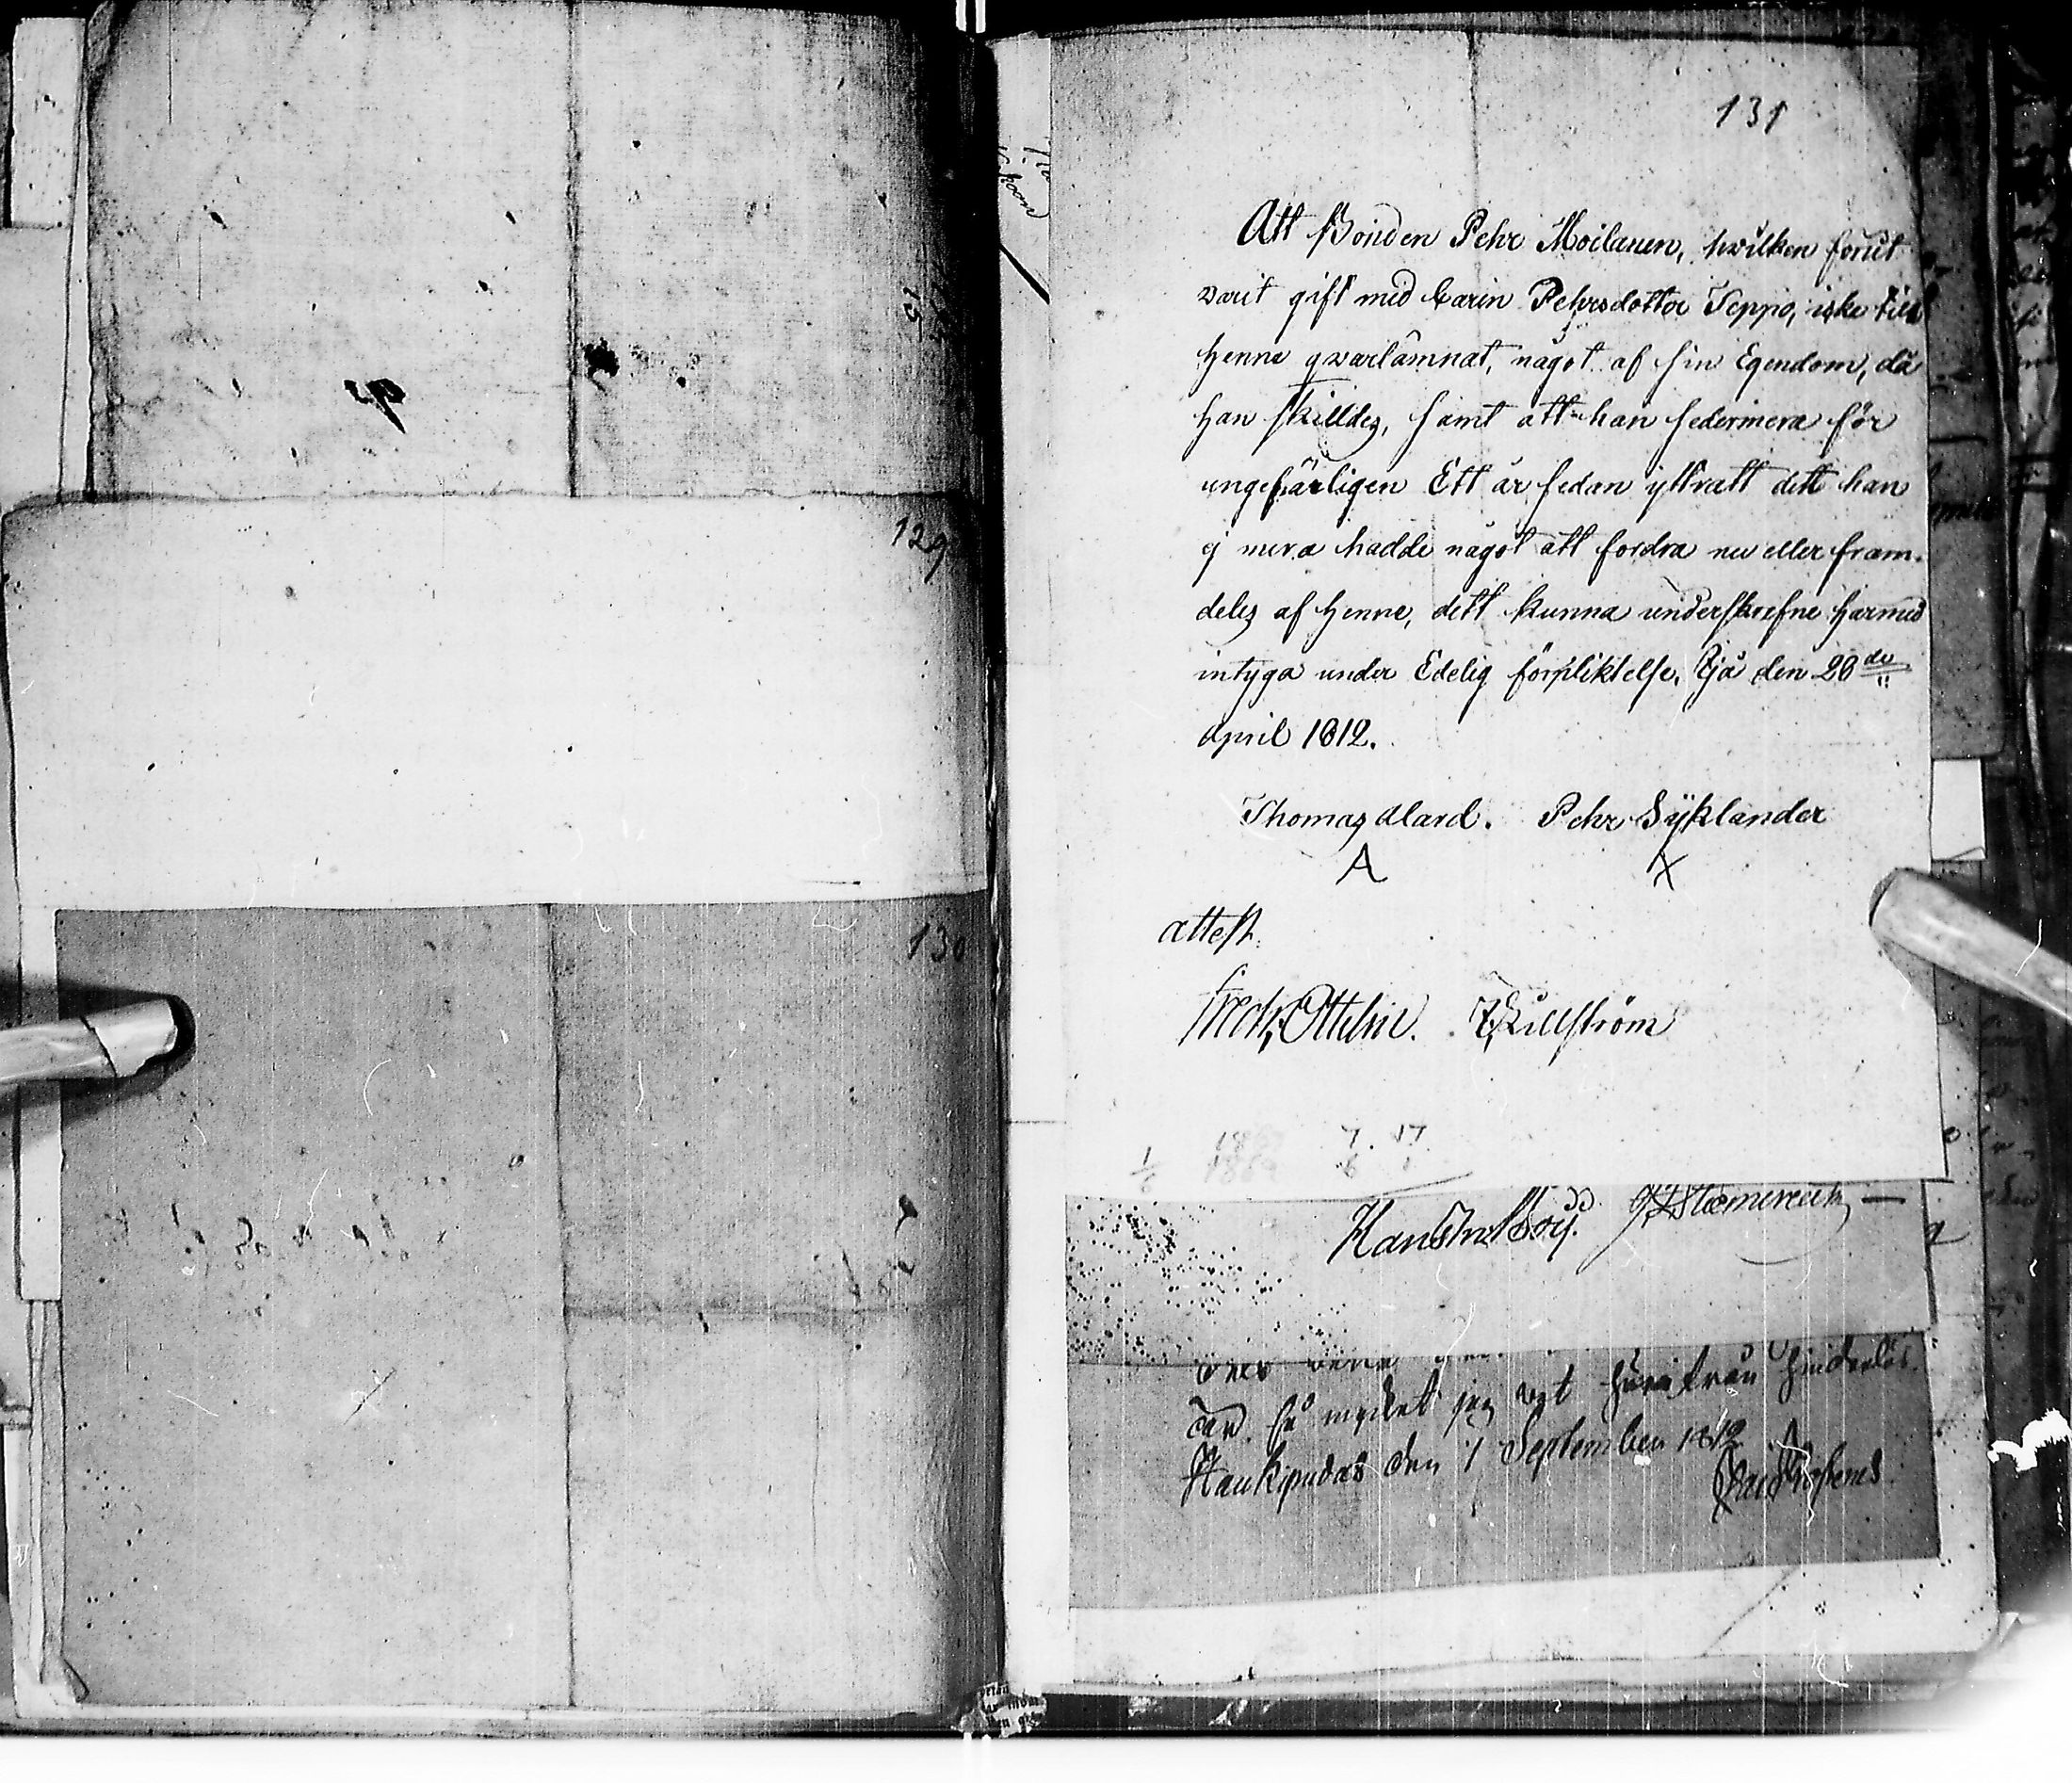 129
130
131
Att Bonden Pehr Moilanen, hwilken förut
varit gift med Carin Pehrsdotter Seppo, icke till
henne qvarlämnat, något af sin Egendom, då
han skilldes, samt att han sedermera för
ungefärligen Ett år sedan yttratt dett han
ej mera hadde något att fordra nu eller fram-
deles af henne, dett kunna underskrefne härmed
intyga under Edelig förpliktelse, Ijå den 26de
April 1812.
Thomas Alard. Pehr Syklander
A X
attest.
Fredr. Ottelin. Killström
7. 17.
så mycket jag vet hinderlös.
Haukipudas den 1 September 1812